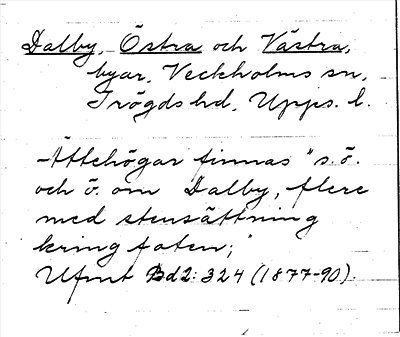 Dalby, Östra och Västra,
byar, Veckholms sn,
Trögds hd, Upps. l.
Ättehögar finnas "s.ö.
och ö. om Dalby, flere
med stensättning
kring foten;"
Ufmt Bd2: 324 (1877-90).